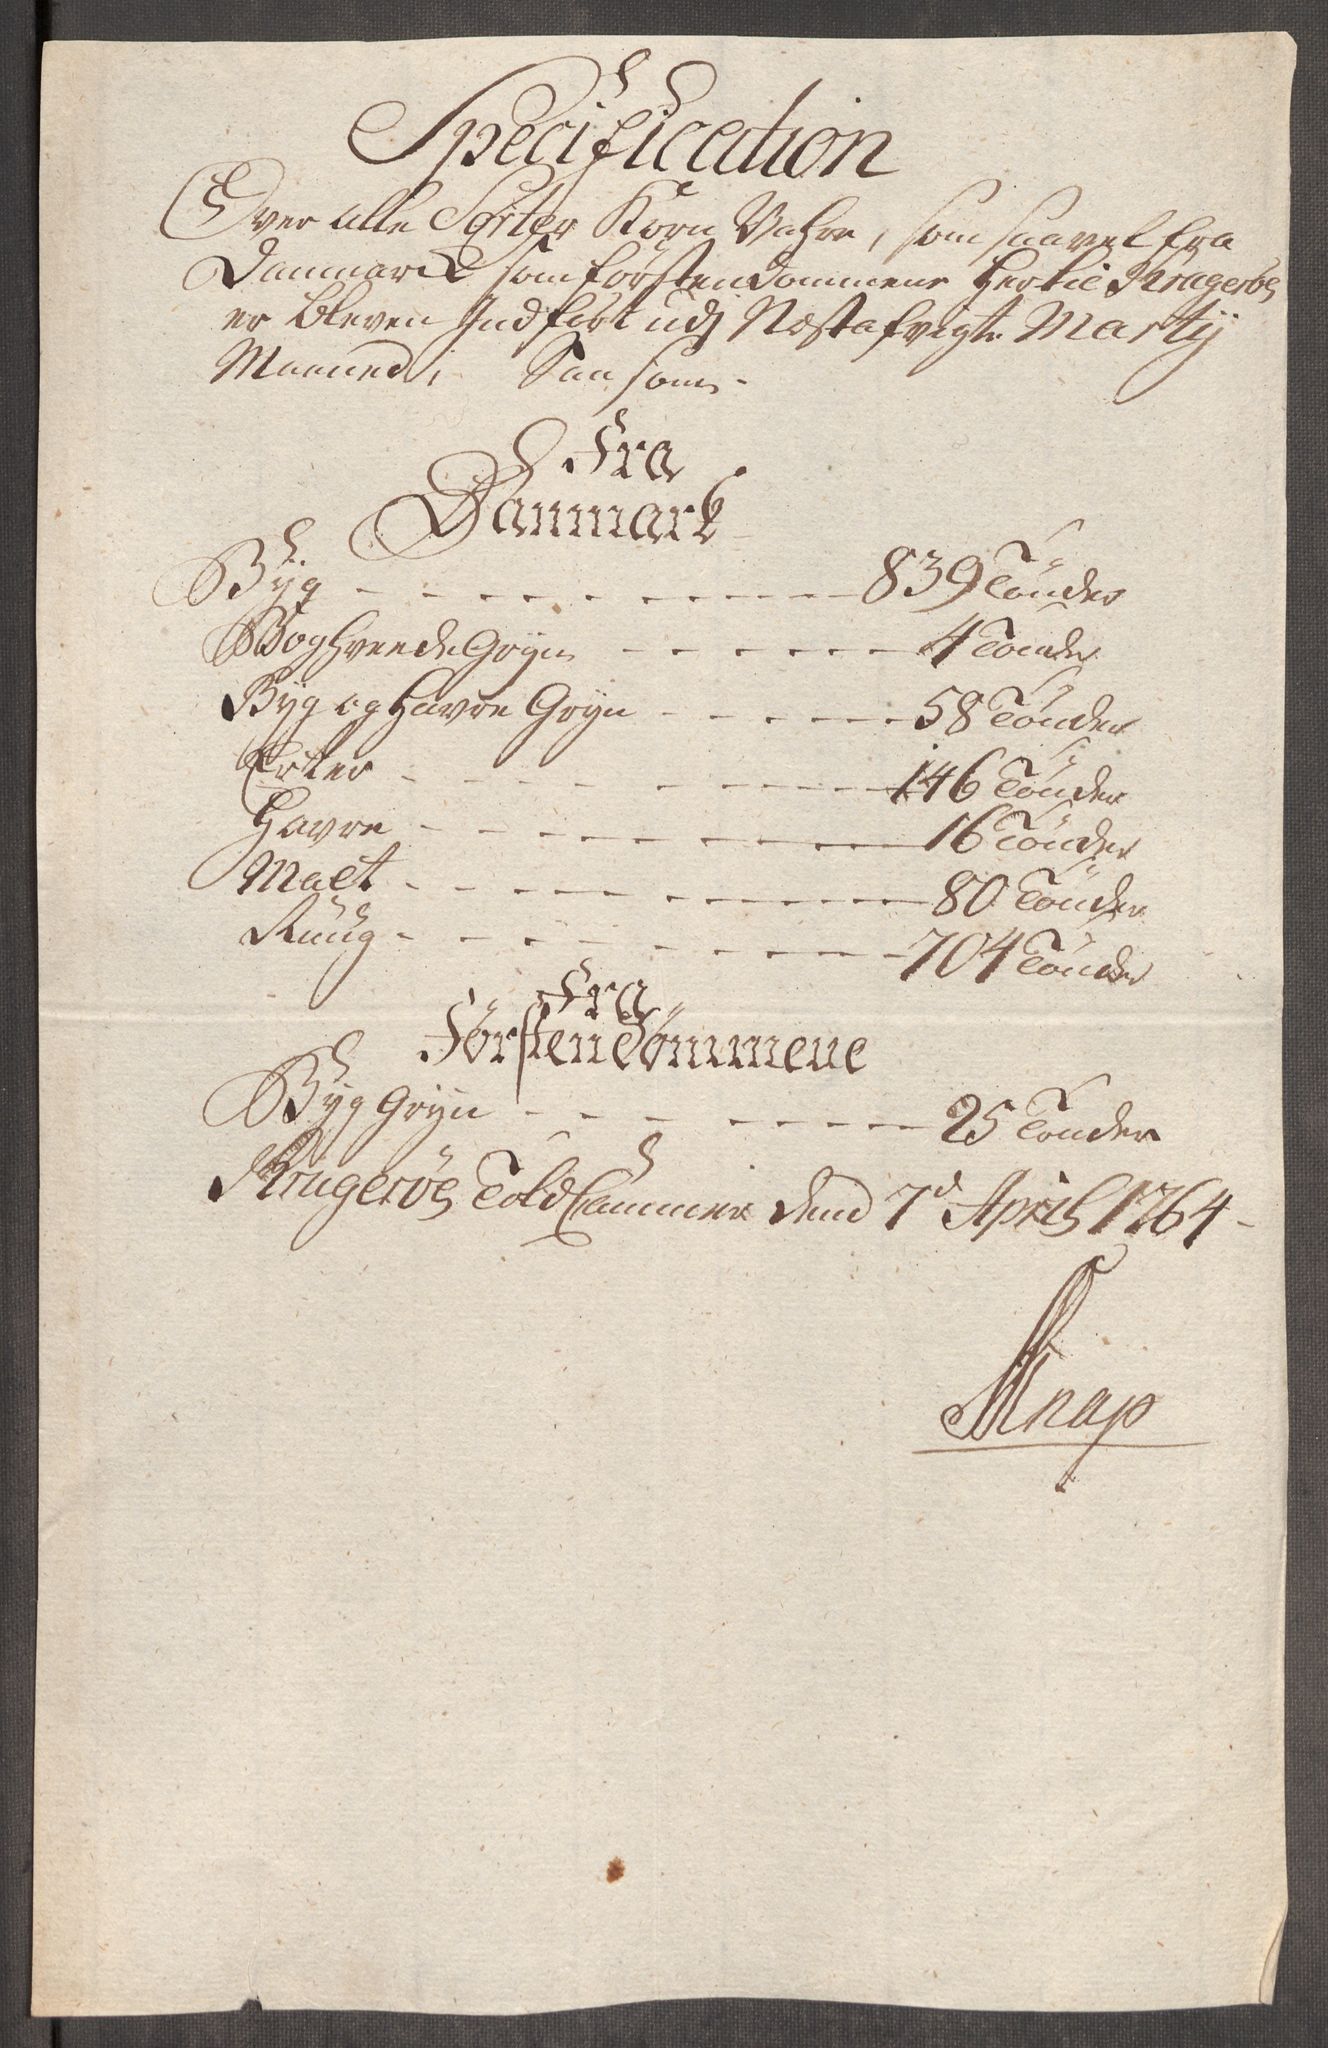 Specification
Over alle Sorter Korn Vahre, som saavel fra
Danmarck som Førstendommene hertil Kragerøe
er bleven Indført udj Næstafvigte Martij
Maaned, Saasom.
Fra
Danmark
Byg - - - - - - - - - 839 Tønder
Boghvede Gryn - - - - - - 4 Tønder
Byg og Havre Gryn - - - - - 58 Tønder
Erter - - - - - - - - 146 Tønder
Havre - - - - - - - - 16 Tønder
Malt - - - - - - - - 80 Tønder
Ruug - - - - - - - - 704 Tønder
Fra
Førstendømmene
Byg Gryn - - - - - - - 25 Tønder
Kragerøe Told Cammer dend 7d April 1764 -
Knap